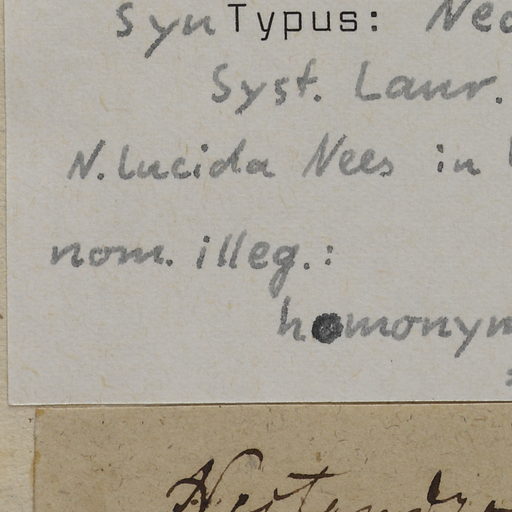 SynTypus: Nec
Syst. Laur.
N. lucida Nees in
nom. illeg.:
homonym
Nectandra